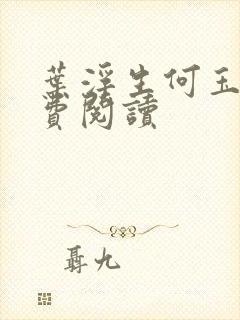 葉浮生何玉
費閱讀
聶九